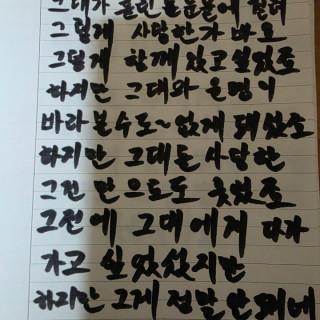 그대가 흘린 눈물꽃에 걸려
그렇게 사랑한가 봐요
그렇게 함께 있고 싶었죠
하지만 그대와 운명이
바라볼수도~없게 돼섰소
하지만 그대든 사랑한
그전 만으로도 웃었죠
그전에 그대에게 다가
가고 싶었섰지만
하지만 그게 정말 안돼네